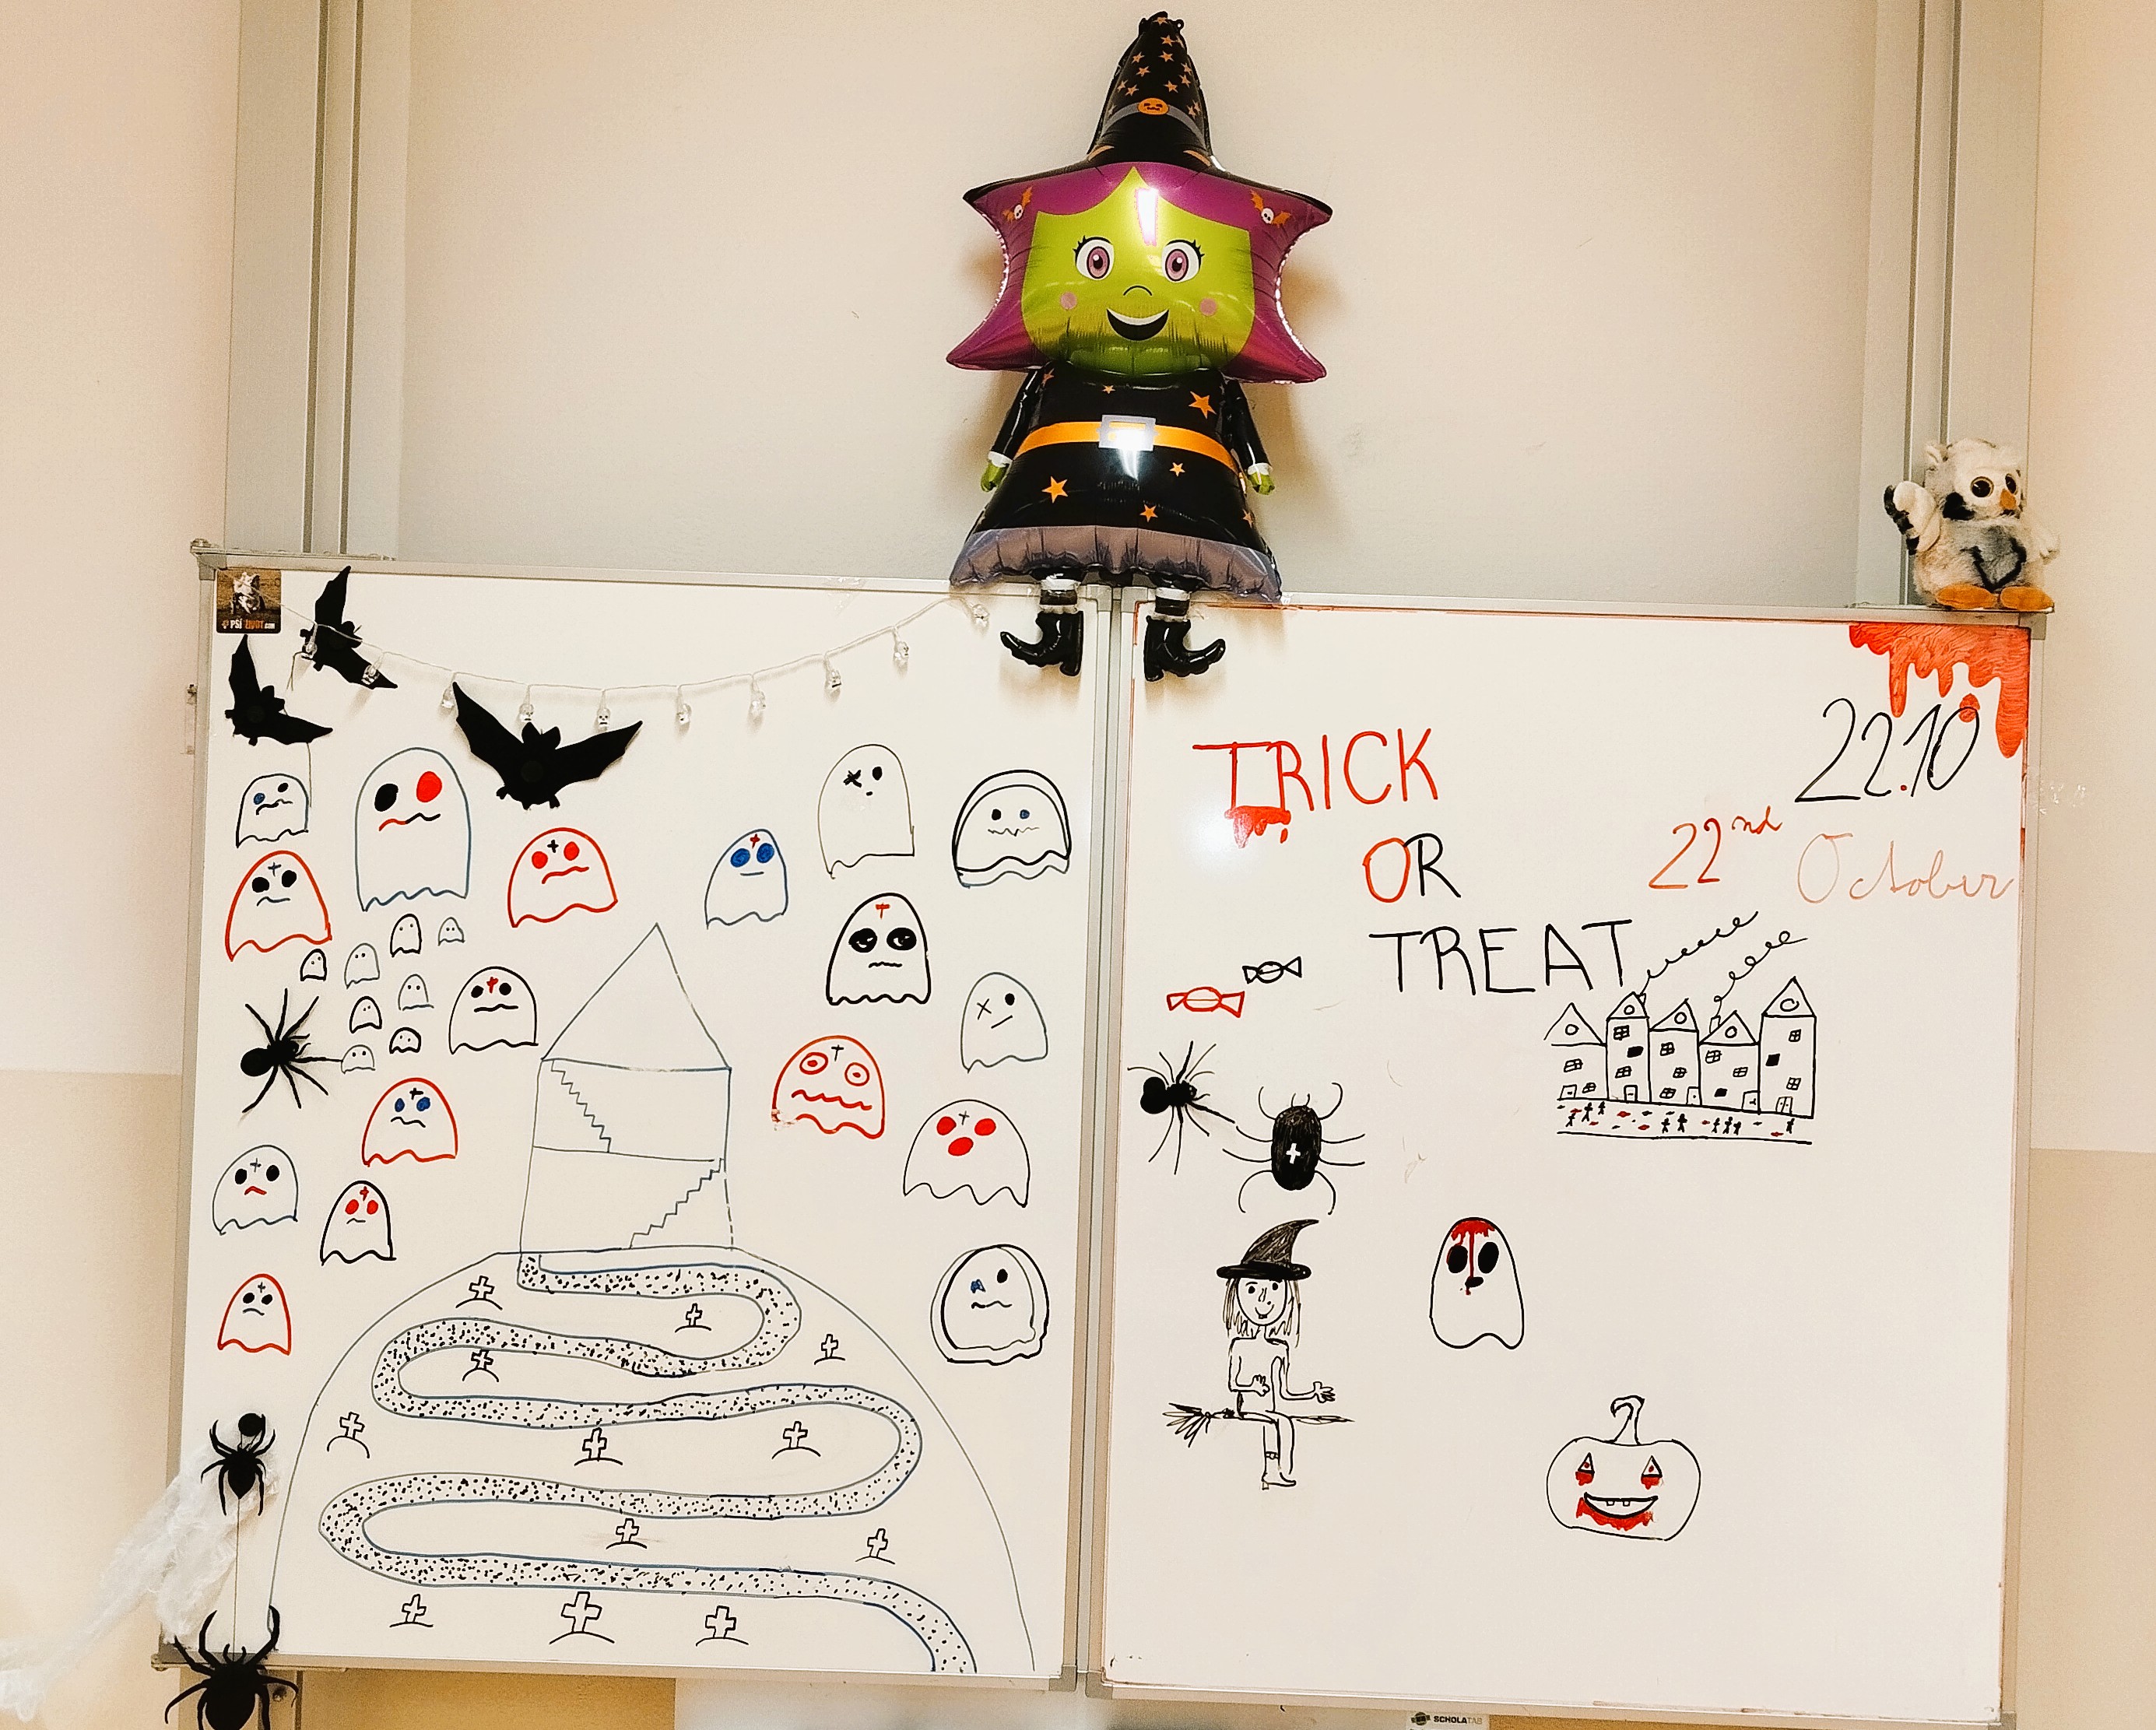 PSÍ ŽIVOT.COM
TRICK
OR
TREAT
22.10
22nd October
SCHOLATAB